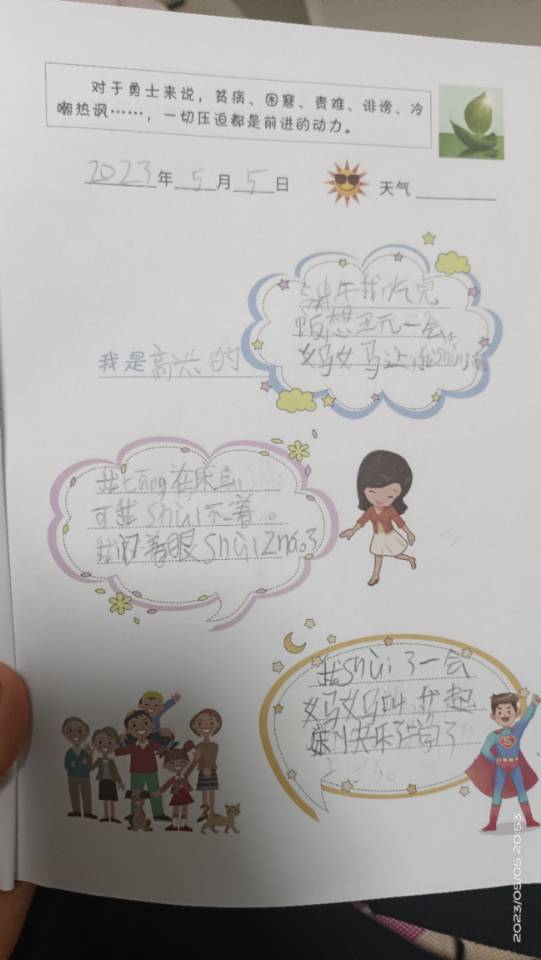 对于勇士来说，贫病、困窘、责难、诽谤、冷
嘲热讽……，一切压迫都是前进的动力。
2023年5月5日 天气
午我吃完
饭想玩一会
妈妈让我shuì
我是高兴的
我tǎng在床上
可我shuì不着。
我闭着眼shuì zháo了
我shuì了一会
妈妈叫我起
床 快乐 了
2023/05/05 20:53